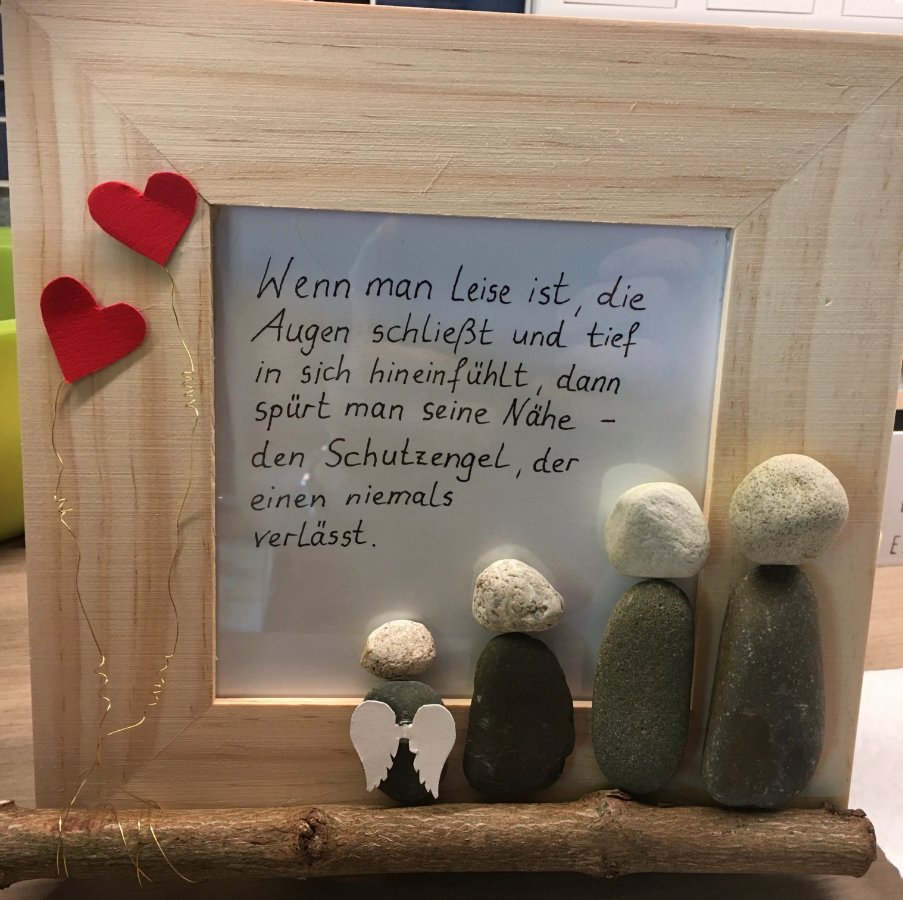 Wenn man Leise ist, die
Augen schließt und tief
in sich hineinfühlt, dann
spürt man seine Nähe -
den Schutzengel, der
einen niemals
verlässt.